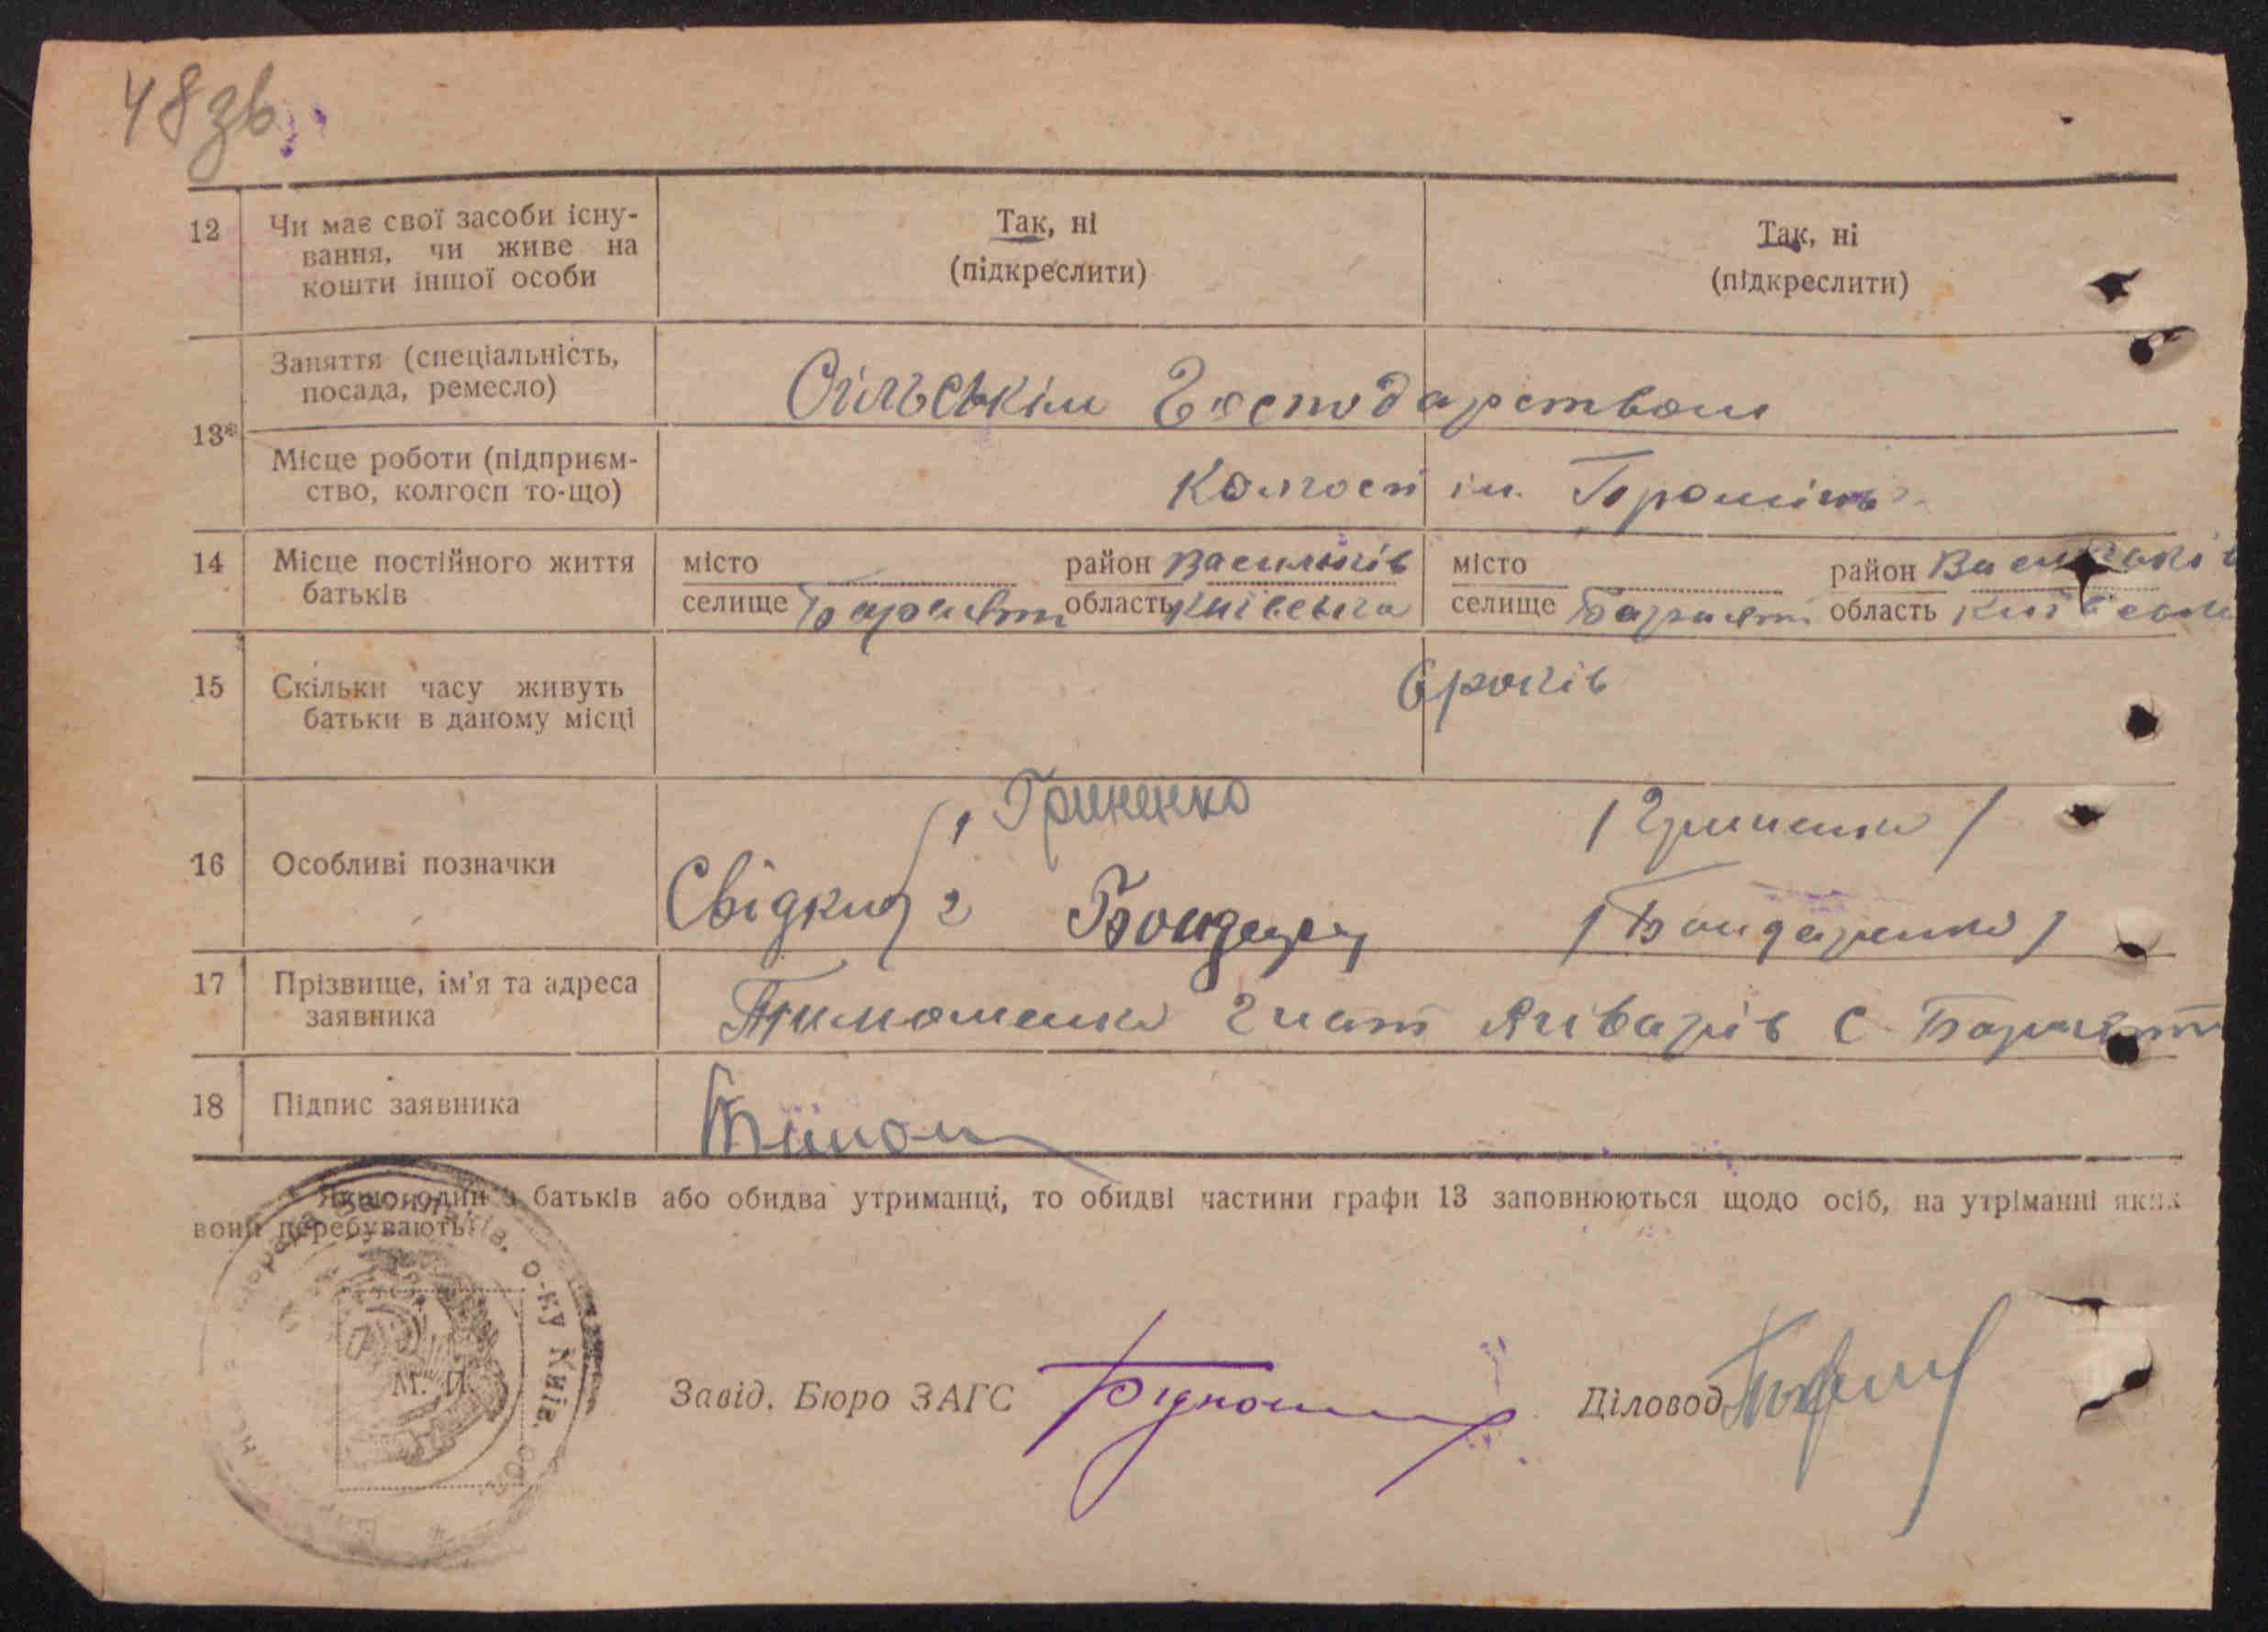 48зв
12 Чи має свої засоби існу-
вання, чи живе на
кошти іншої особи
Так, ні
(підкреслити)
Так, ні
(підкреслити)
13*
Заняття (спеціальність,
посада, ремесло)
Сільськім Господарством
Місце роботи (підприєм-
ство, колгосп то-що)
Колгосп ім.
14 Місце постійного життя
батьків
місто
селище Барахти
район Васильків
область Київська
місто
селище Барахти
район Васильків
область Київська
15 Скільки часу живуть
батьки в даному місці
6 років
16 Особливі позначки
Свідки
1 Гриненко /Гриненко/
2 Бондар /Бондаренко/
17 Прізвище, ім'я та адреса
заявника
Тимошенко Гнат с. Барахти
18 Підпис заявника
Тимош
* Якщо один з батьків або обидва утриманці, то обидві частини графи 13 заповнюються щодо осіб, на утріманні яких
вони перебувають.
о-ку Київ.
М. П.
Завід. Бюро ЗАГС
Діловод